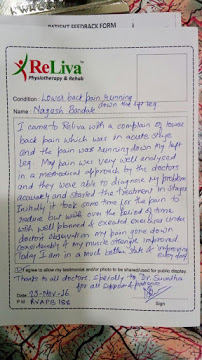 PATIENT FEEDBACK FORM
ReLiva
Physiotherapy & Rehab
Condition: Lower back pain running
down the left leg
Name: Nagesh Bandak
I came to ReLiva with a complain of lower
back pain which was in acute stage
and the pain was running down my left
leg. My pain was very well analysed
in a methodical approach by the doctors
and they were able to diagnose my problem
accurately and started the treatment in stages
Initially it took some time for the pain to
reduce but with over the period of time
with well planned & executed exercises under
doctors observation my pain gone down
considerably & my muscle strength improved
Today I am in a much better state & improving
every day!
I agree to allow my testimonial and/or photo to be shared/used for public display
Thanks to all doctors specially to Dr.
for all support &
Date: 25-Nov-16
Sign